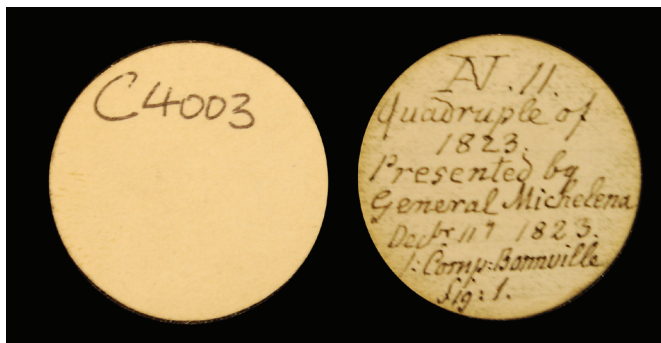 C4003
AV. 11.
Quadruple of
1823.
Presented by
General Michelena
1823.
1: Comp: Bonnville
fig: 1.